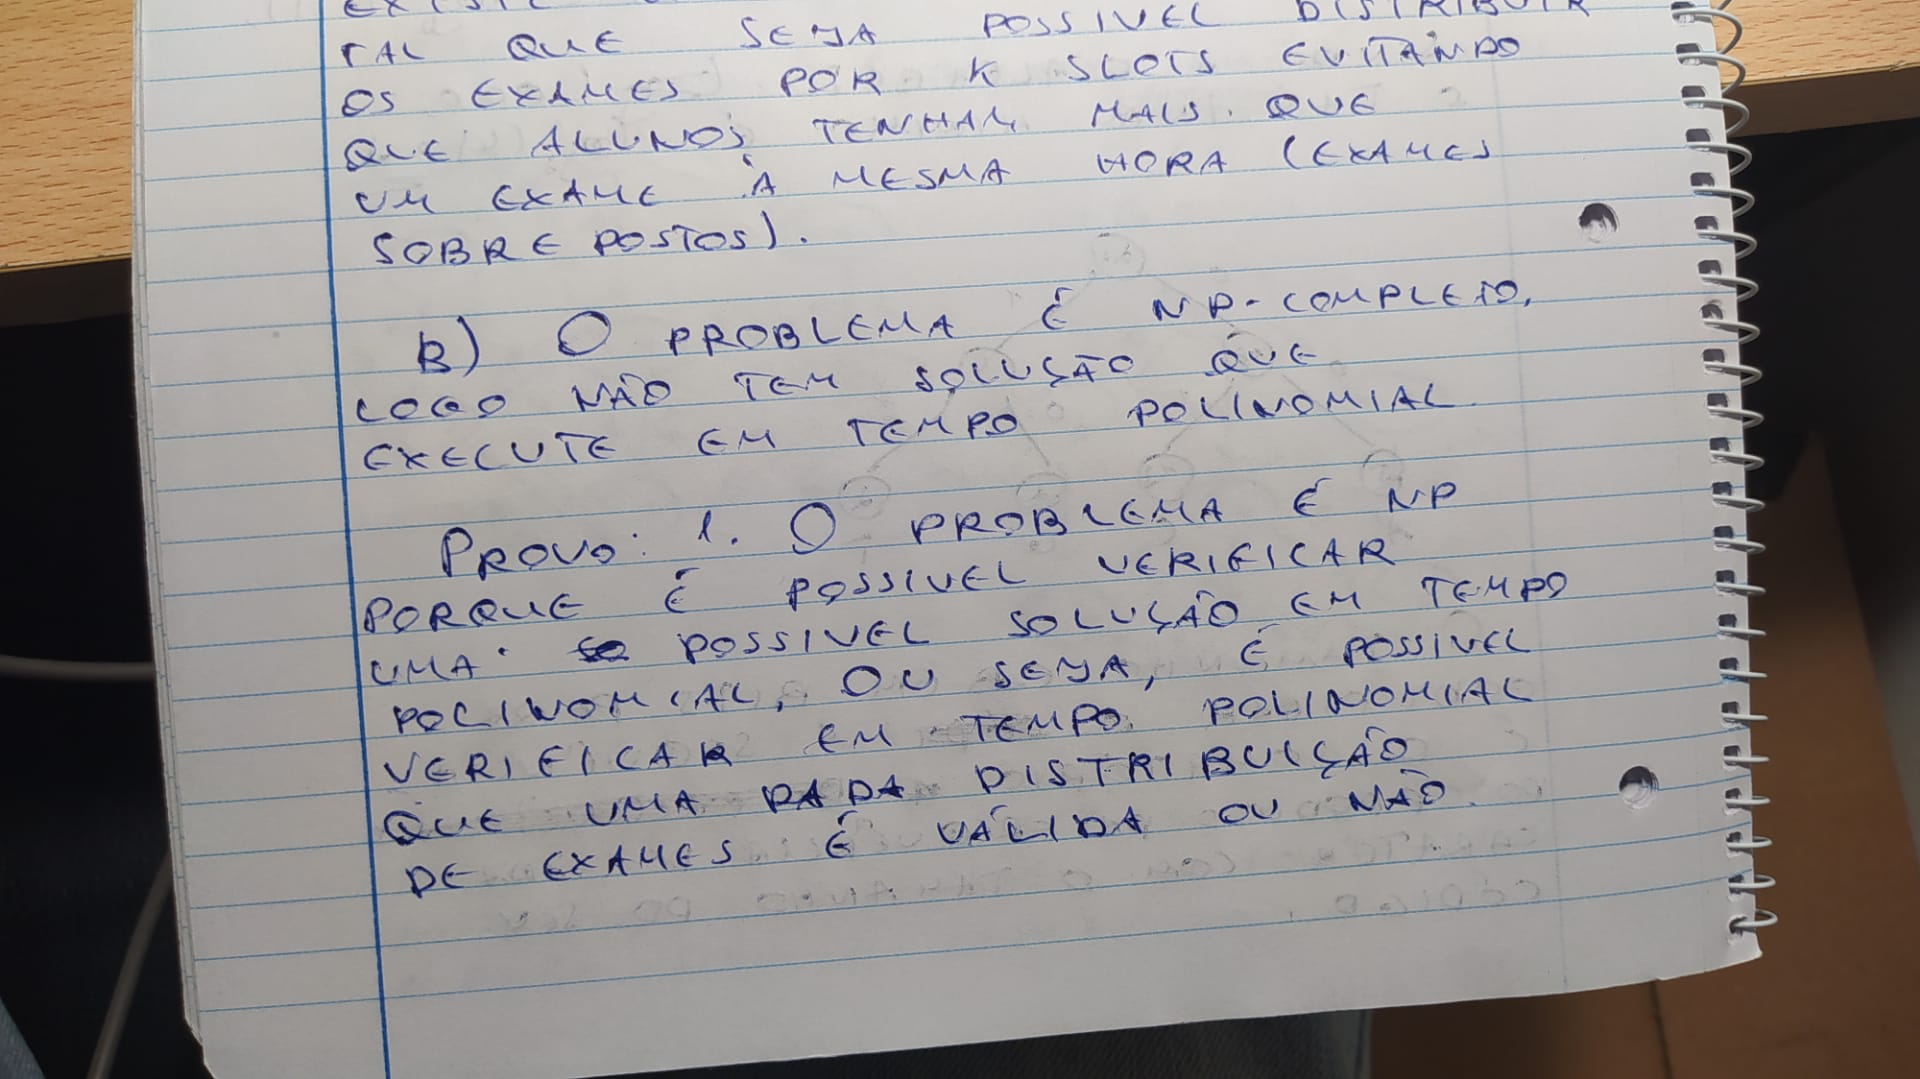 EXISTE
TAL QUE SEJA POSSIVEL DISTRIBUIR
OS EXAMES POR K SLOTS EVITANDO
QUE ALUNOS TENHAM MAIS QUE
UM EXAME À MESMA HORA (EXAMES
SOBREPOSTOS).
B) O PROBLEMA É NP-COMPLETO,
LOGO NÃO TEM SOLUÇÃO QUE
EXECUTE EM TEMPO POLINOMIAL
PROVO: 1. O PROBLEMA É NP
PORQUE É POSSIVEL VERIFICAR
UMA POSSIVEL SOLUÇÃO EM TEMPO
POLINOMIAL, OU SEJA, É POSSIVEL
VERIFICAR EM TEMPO POLINOMIAL
QUE UMA DADA DISTRIBUIÇÃO
DE EXAMES É VÁLIDA OU NÃO.